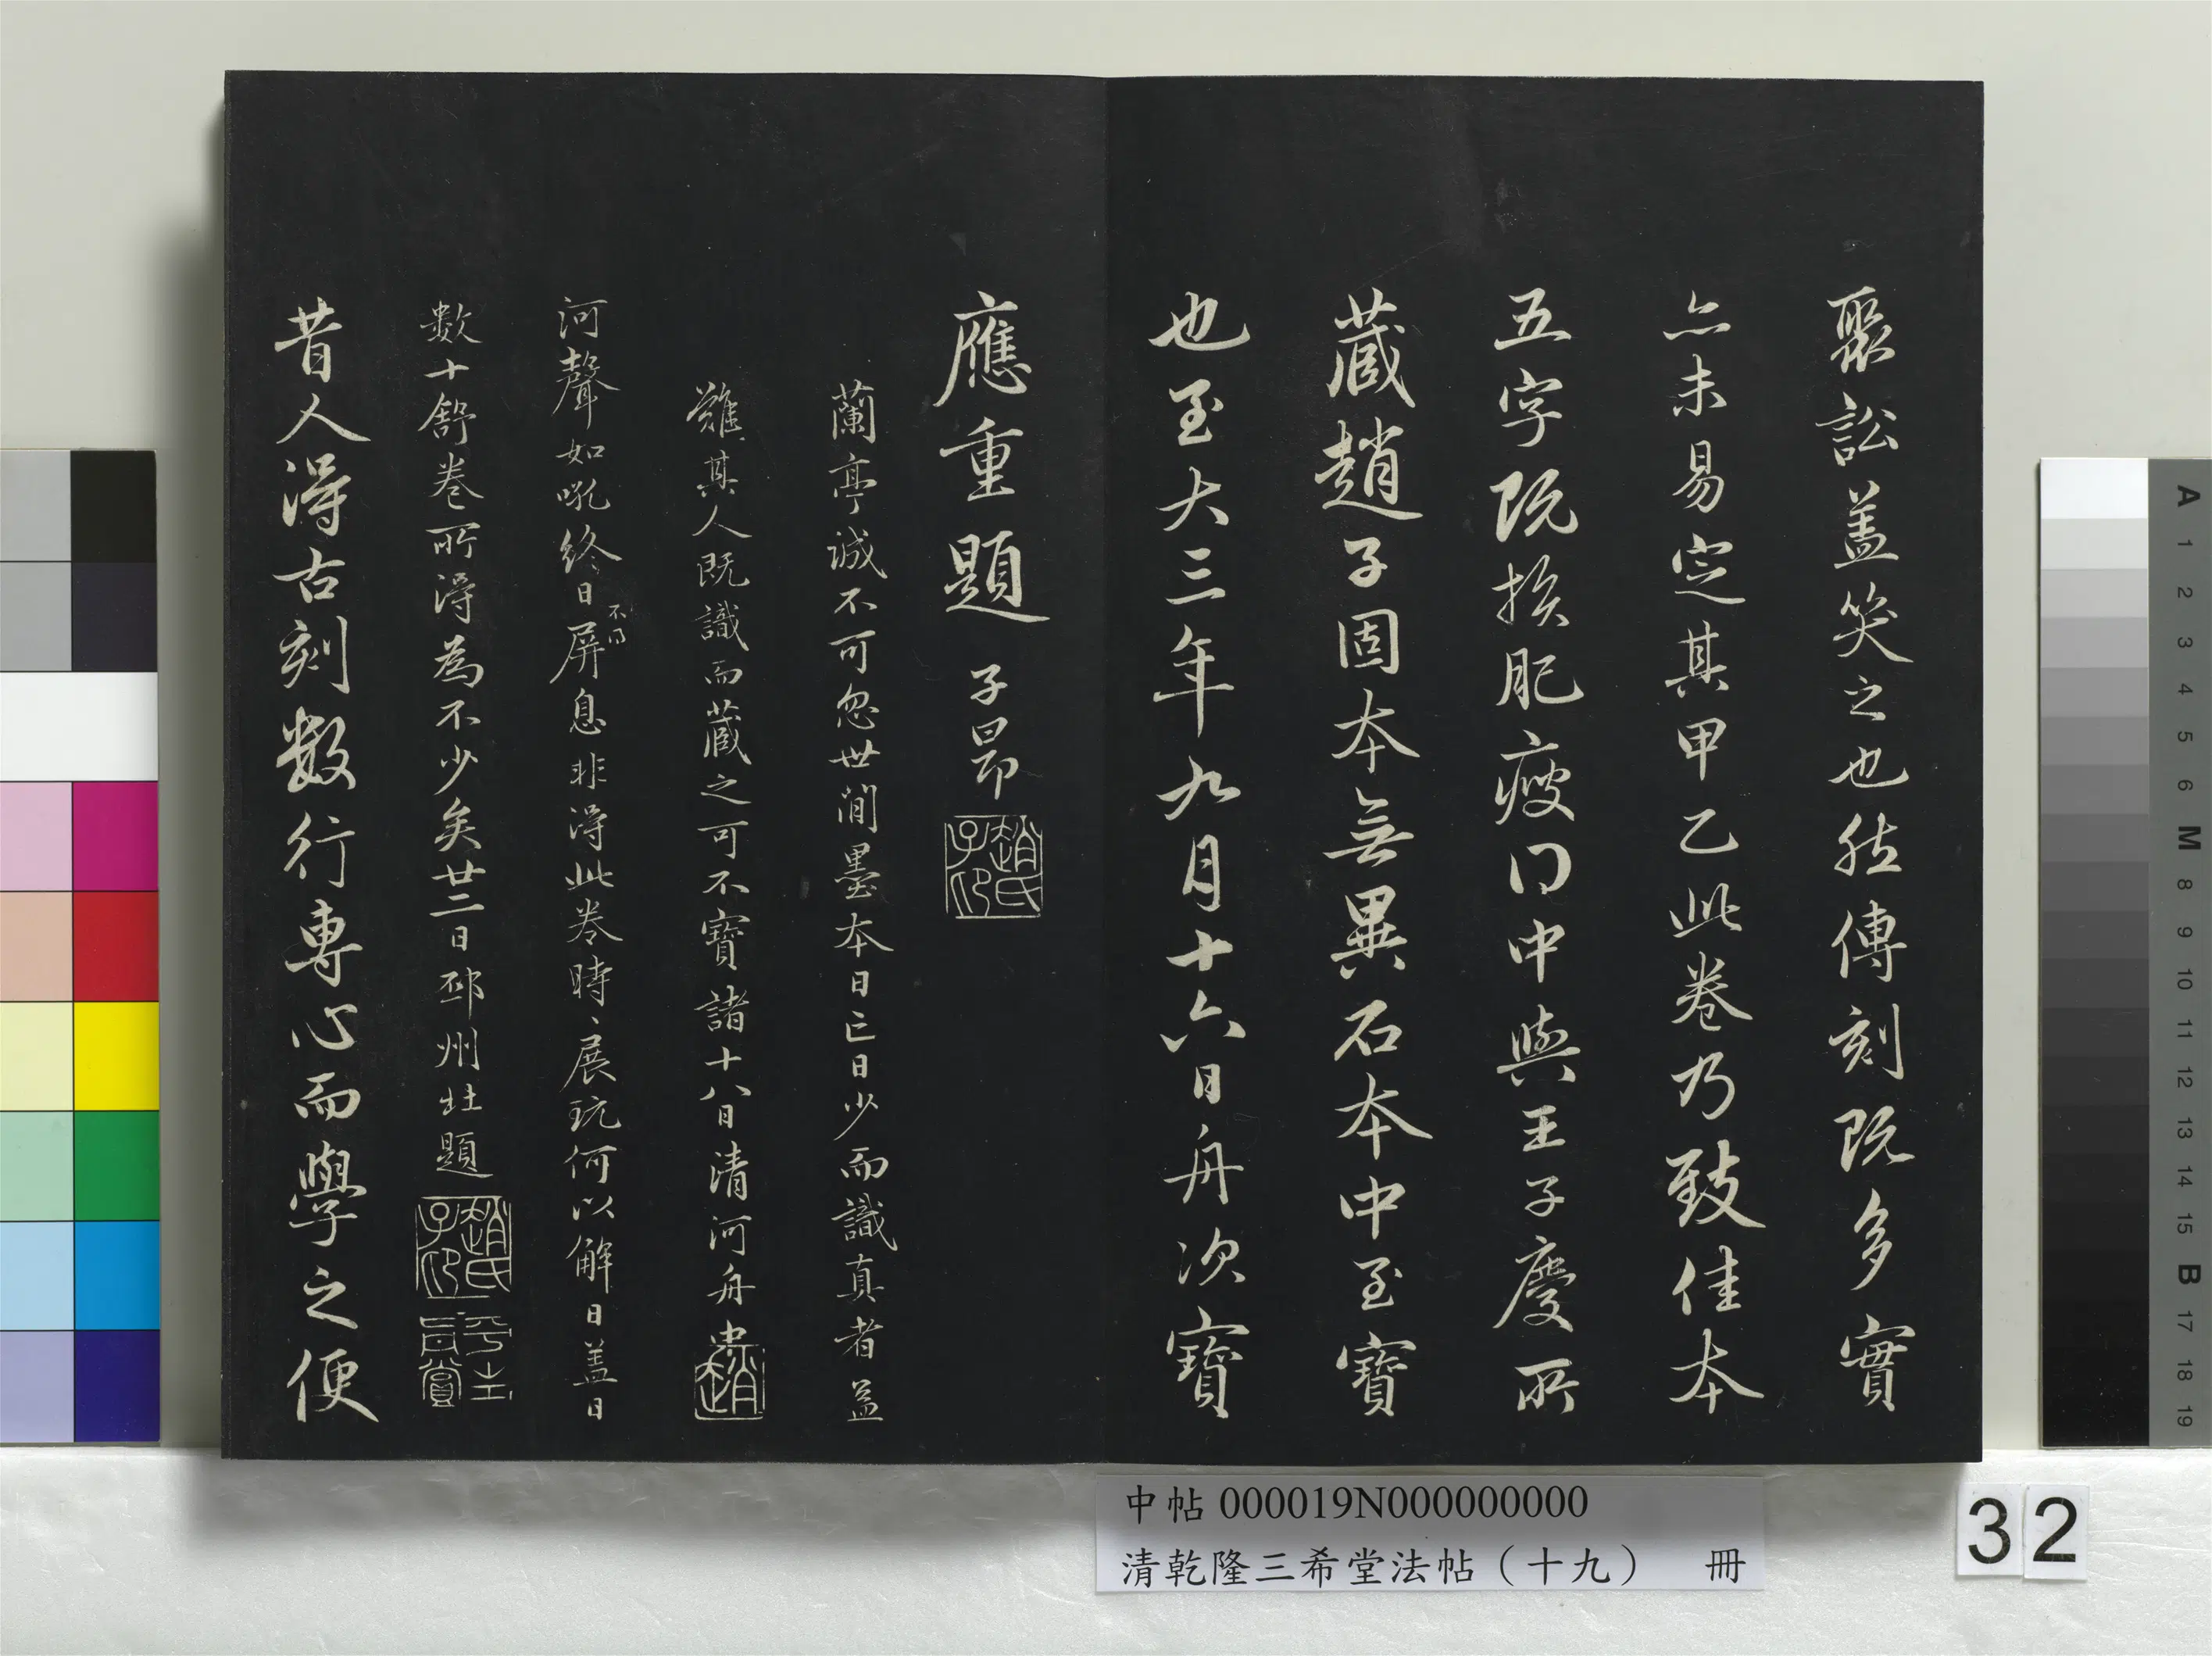 聚訟蓋笑之也然傳刻既多實
亦未易定其甲乙此卷乃致佳本
五字既損肥瘦得中與王子慶所
藏趙子固本無異石本中至寶
也至大三年九月十六日舟次寶
應重題 子昂
趙氏子印
蘭亭誠不可忽世間墨本日亡日少而識真者益
難其人既識而藏之可不寶諸十八日清河舟中
趙
河聲如吼終日屏息非得此卷時、展玩何以解日蓋日
不得
數十舒卷所得為不少矣廿二日邳州北題
趙氏子印
昔人得古刻數行專心而學之便
中帖 000019N000000000
清乾隆三希堂法帖（十九） 冊
32
A
1
2
3
4
5
6
M
8
9
10
11
12
13
14
15
B
17
18
19